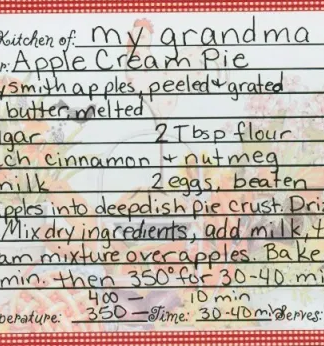 Kitchen of: my grandma
Apple Cream Pie
smith apples, peeled + grated
butter, melted
2 Tbsp flour
cinnamon + nutmeg
milk 2 eggs, beaten
into deepdish pie crust.
Mix dry ingredients, add milk,
mixture over apples. Bake
min. then 350° for 30-40
400 - 10 min
350 - Time: 30-40 min Serves: